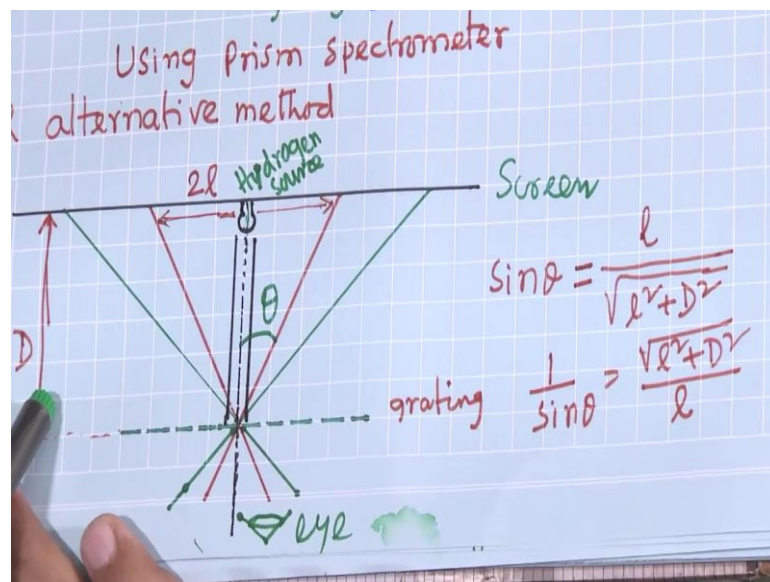 Using Prism spectrometer
alternative method
Hydrogen
source
2l
Screen
sinθ = l / √l²+D²
θ
D
grating
1 / sinθ = √l²+D² / l
eye